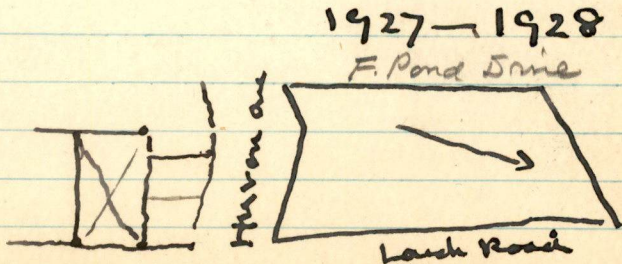 1927 — 1928
F. Pond Drive
Huron Ave
Road